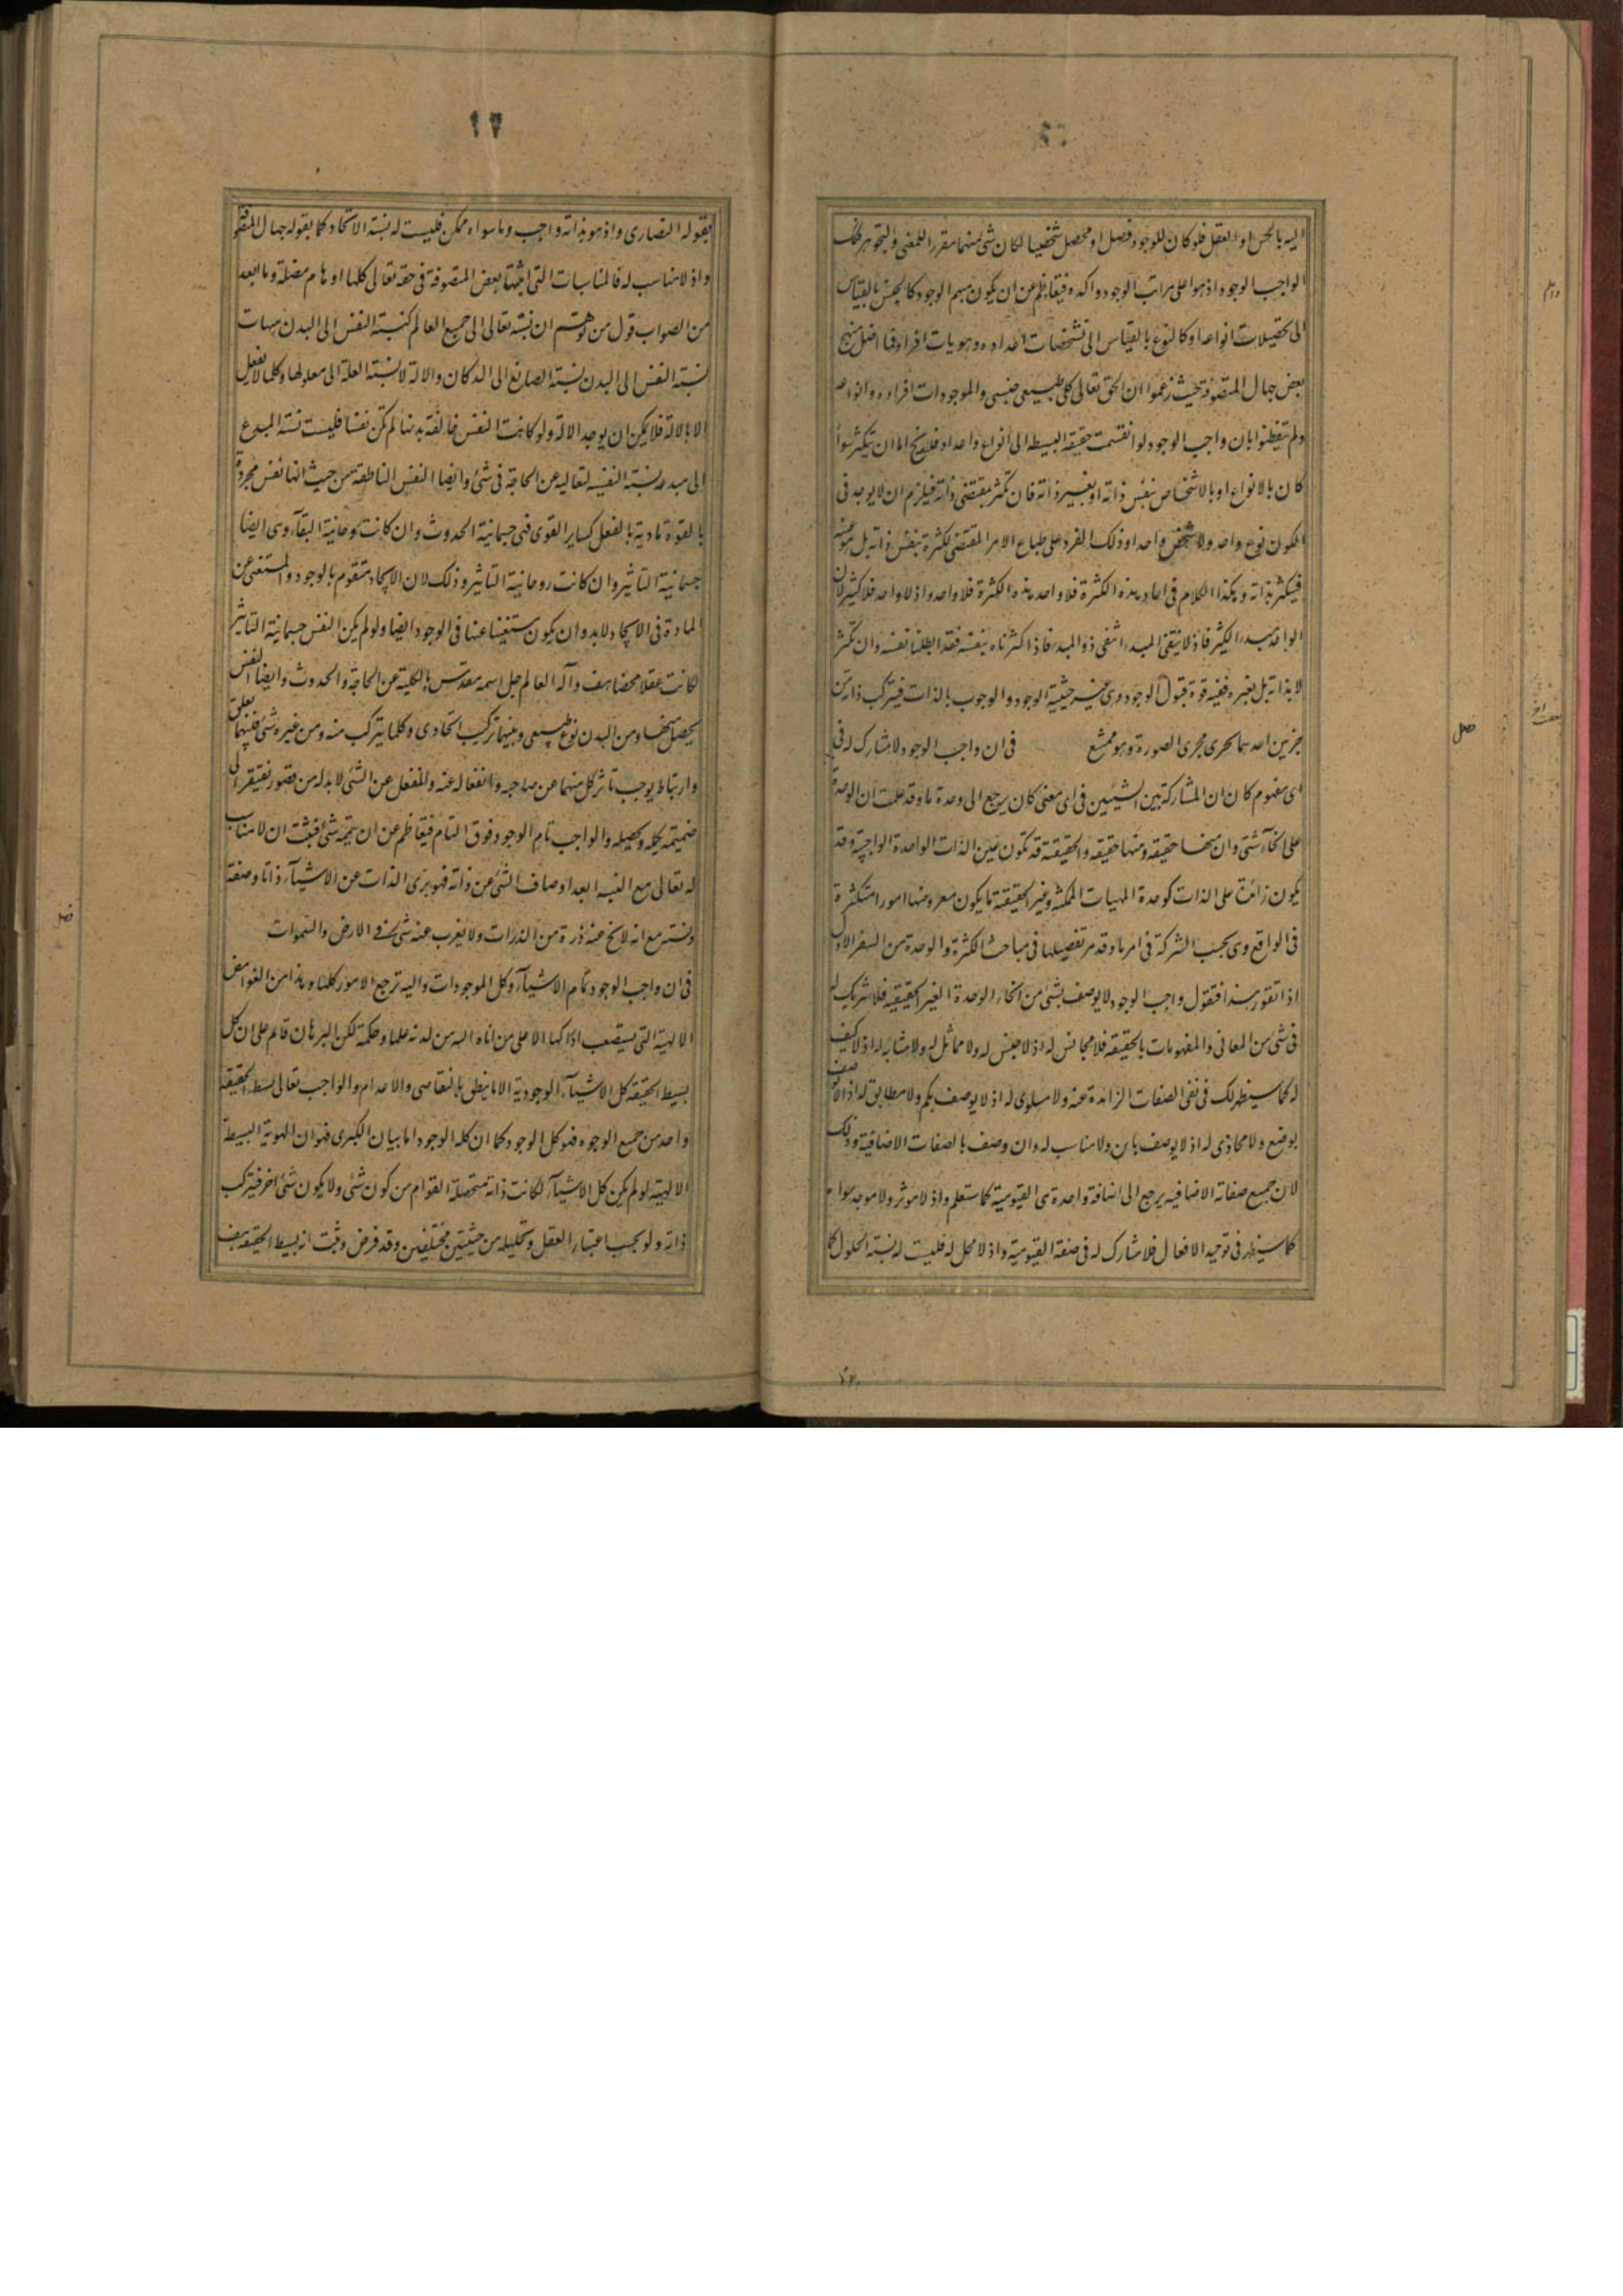 اليه بالحس او العقل فلو كان للوجود فصل او محصل شخصيا لكان شئ منهما مقررا للمعنى والتجوهر فكك
الواجب الوجود اذ هو اعلى مراتب الوجود واكده فيتعاظم عن ان يكون مبهم الوجود كالجنس بالقياس
الى تحصيلات انواعه او كالنوع بالقياس الى تشخصات اعداده وهويات افراده فما اضل منهج
بعض جهال المتصوفة حيث زعموا ان الحق تعالى كلى طبيعى جنسى والموجودات افراده وانواعه
ولم يتفطنوا بان واجب الوجود لو انقسمت حقيقته البسيطه الى انواع واعداد فلا يخ اما ان يتكثر سواء
كان بالانواع او بالاشخاص بنفس ذاته او بغير ذاته فان تكثر بمقتضى ذاته فيلزم ان لا يوجد فى
الكون نوع واحد ولا شخص واحد اذ ذلك الفرد على طباع الامر المقتضى لكثرة بنفس ذاته بل هو عينه
فيكثر بذاته وهكذا الكلام فى احاد هذه الكثرة فلا واحد هذه الكثرة فلا واحد واذ لا واحد فلا كثير لان
الواحد مبدء الكثير فاذ لا ينفى المبدء انتفى ذو المبدء فاذا كثرناه بنفسه فقد ابطلنا نفسه وان تكثر
لا بذاته بل بغيره ففيه قوة قبول الوجود وهى غير حيثية الوجود والوجوب بالذات فيتركب ذاته من
جزئين احدهما يجرى مجرى الصورة وهو ممتنع فى ان واجب الوجود لا مشارك له فى
اى مفهوم كان ان المشاركة بين الشيئين فى اى معنى كان يرجع الى وحدة ما وقد علمت ان الوحدة
على انحآء شتى وان منها حقيقه ومنها غير حقيقه والحقيقة قد تكون عين الذات الواحدة الواجبة وقد
يكون زائدة على الذات كوحدة المهيات الممكنه وغير الحقيقة ما يكون معروضها امورا متكثرة
فى الواقع وهى بحسب الشركة فى امر ما وقد مر تفصيلها فى مباحث الكثرة والوحدة من السفر الاول
اذا تقرر هذا فنقول واجب الوجود لا يوصف بشئ من انحاء الوحدة الغير الحقيقيه فلا شريك له
فى شئ من المعانى والمفهومات بالحقيقه فلا مجانس له اذ لا جنس له ولا مماثل له ولا مشابه له اذ لا كيف
له كما سيظهر لك فى نفى الصفات الزائدة عنه ولا مساوى له اذ لا يوصف بكم ولا مطابق له اذ لا يوصف
بوضع ولا محاذى له اذ لا يوصف باين ولا مناسب له وان وصف بالصفات الاضافية وذلك
لان جميع صفاته الاضافيه يرجع الى اضافة واحدة هى القيومية كما ستعلم واذ لا موثر ولا موجد سواه
كما سيظهر فى توحيد الافعال فلا مشارك له فى صفة القيومية واذ لا محل له فليست له نسبة الحلول كما
فصل
يقوله النصارى واذ هو بذاته واجب وما سواه ممكن فليست له نسبة الاتحاد كما يقوله جهال المتصوفة
واذ لا مناسب له فالمناسبات التى اثبتها بعض المتصوفة فى حقه تعالى كلها اوهام مضلة وما ابعد
من الصواب قول من توهم ان نسبته تعالى الى جميع العالم كنسبة النفس الى البدن هيهات
نسبة النفس الى البدن نسبة الصانع الى الدكان والالة لا نسبة العلة الى معلولها وكلما لا يفعل
الا بالالة فلا يمكن ان يوجد الالة ولو كانت النفس خالقة بدنها لم تكن نفسا فليست نسبة المبدع
الى مبدعه نسبة النفس لتعاليه عن الحاجة فى شئ وايضا النفس الناطقة من حيث انها نفس مجردة
بالقوة مادية بالفعل كساير القوى فهى جسمانية الحدوث وان كانت روحانية البقآء وهى ايضا
جسمانية التاثير وان كانت روحانية التاثير وذلك لان الايجاد متقوم بالوجود والمستغنى عن
المادة فى الايجاد لابد وان يكون مستغنيا عنها فى الوجود ايضا ولو لم يكن النفس جسمانية التاثير
لكانت عقلا محضا هف واله العالم جل اسمه مقدس بالكلية عن الحاجة والحدوث وايضا النفس
يحصل منها ومن البدن نوع طبيعى وبينهما تركيب اتحادى وكلما يتركب منه ومن غيره شئ فبينهما تعلق
وارتباط يوجب تاثر كل منهما عن صاحبه وانفعاله عنه والمنفعل عن الشئ لابد له من قصور يفتقر الى
ضميمة يكمله ويحصله والواجب تام الوجود فوق التمام فيتعاظم عن ان يتممه شئ فثبت ان لا مناسب
له تعالى مع النسبه ابعد اوصاف الشئ عن ذاته فهو برى الذات عن الاشيآء ذاتا وصفة
ونسبة مع انه لا يخ عنه ذرة من الذرات ولا يعزب عنه شئ فى الارض والسموات
فى ان واجب الوجود تمام الاشيآء وكل الموجودات واليه ترجع الامور كلها وهذا من الغوامض
الالهية التى يستصعب ادراكها الا على من اتاه الله من لدنه علما وحكمة لكن البرهان قائم على ان كل
بسيط الحقيقه كل الاشيآء الوجودية الا ما يتعلق بالنقايص والاعدام والواجب تعالى بسيط الحقيقة
واحد من جميع الوجوه فهو كل الوجود كما ان كله الوجود اما بيان الكبرى فهو ان الهوية البسيطة
الالهية لو لم يكن كل الاشيآء لكانت ذاته متحصلة القوام من كون شئ ولا يكون شئ اخر فيتركب
ذاته ولو بحسب اعتبار العقل وتحليله من حيثيتين مختلفتين وقد فرض وثبت انه بسيط الحقيقه هف
فصل